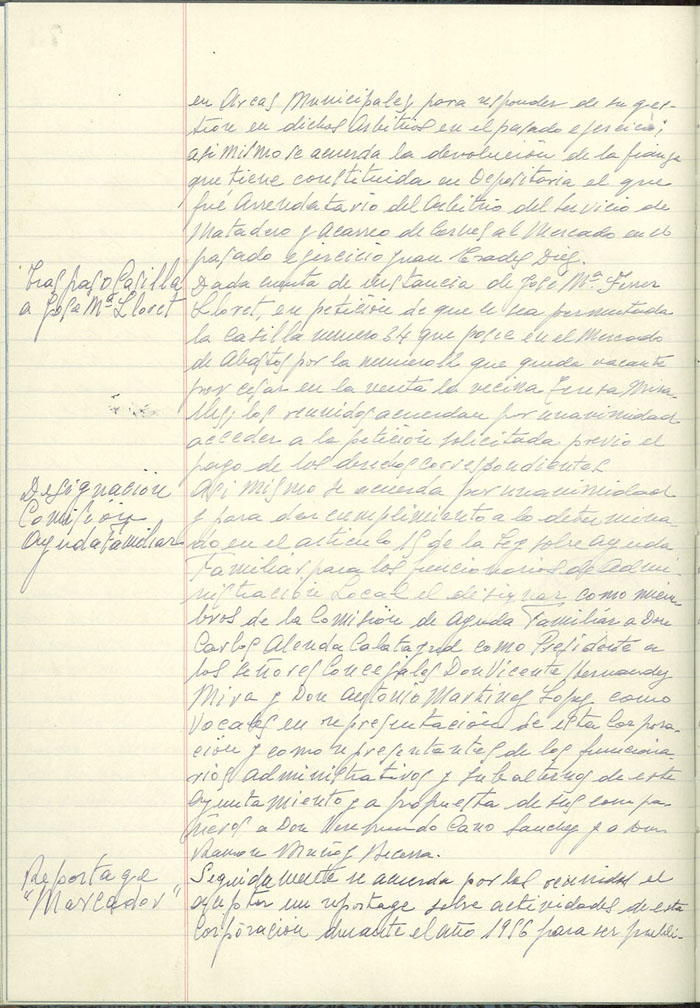 en Arcas Municipales para responder de su ges-
tion en dichos Arbitrios en el pasado ejercicio;
asi mismo se acuerda la devolución de la fianza
que tiene constituida en Depositaria el que
fué Arrendatario del Arbitrio del Servicio de
Matadero y Acarreo de Carnes al Mercado en el
pasado ejercicio Juan
Traspaso Casilla
a Jose Mª Lloret
Dada cuenta de instancia de Jose Mª Ferrer
Lloret, en petición de que le sea permutada
la Casilla numero 34 que posee en el Mercado
de Abastos por la numero 12 que queda vacante
por cesar en la venta la vecina Teresa Mira-
lles; los reunidos acuerdan por unanimidad
acceder a la petición solicitada previo el
pago de los derechos correspondientes.
Designación
Comisión
Ayuda Familiar
Asi mismo se acuerda por unanimidad
y para dar cumplimiento a lo determina-
do en el articulo 15 de la Ley sobre Ayuda
Familiar para los funcionarios de Admi-
nistración Local el designar como miem-
bros de la Comisión de Ayuda Familiar a Don
Carlos Alenda Calatayud como Presidente a
los señores Concejales Don Vicente Hernandez
Mira y Don Antonio Martinez Lopez como
Vocales en representación de esta Corpora-
ción y como representantes de los funciona-
rios administrativos y subalternos de este
Ayuntamiento y a propuesta de sus compa-
ñeros a Don Cano Sanchez y a Don
Ramon Muñoz Becerra.
Reportage
"Marcador"
Seguidamente se acuerda por los reunidos el
aceptar un reportage sobre actividades de esta
Corporación durante el año 1956 para ser publi-